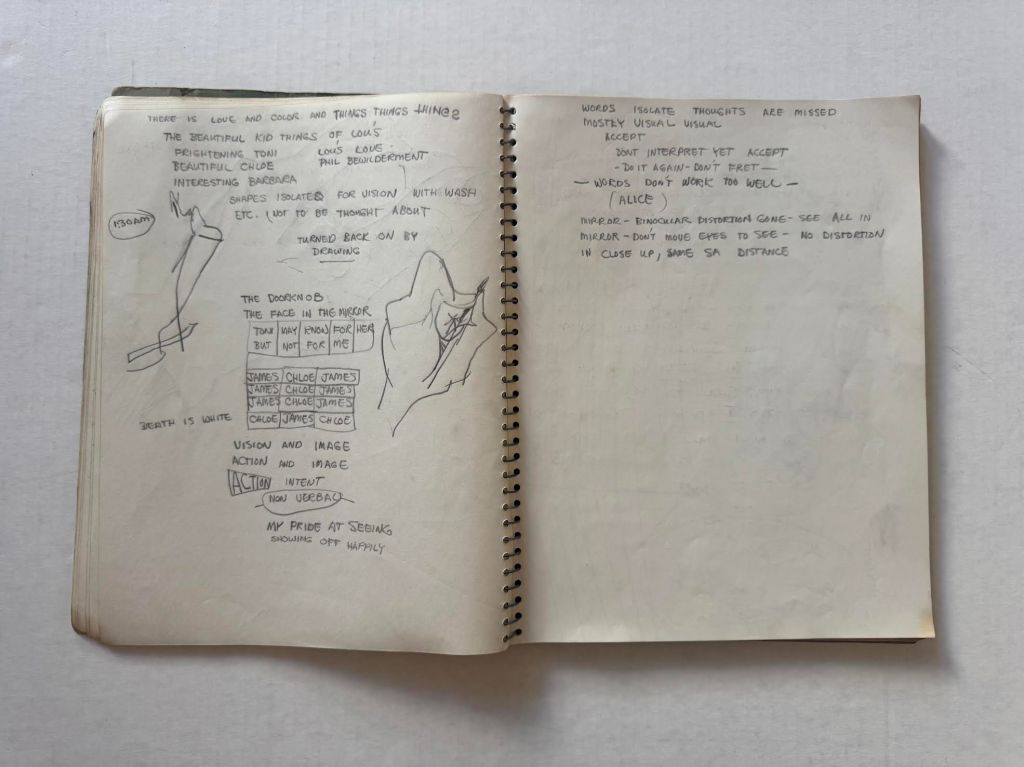 THERE IS LOVE AND COLOR AND THINGS THINGS THINGS
THE BEAUTIFUL KID THINGS OF LOU'S
FRIGHTENING TONI LOU'S LOVE
BEAUTIFUL CHLOE PHIL BEWILDERMENT
INTERESTING BARBARA
SHAPES ISOLATED FOR VISION WITH WASH
ETC. (NOT TO BE THOUGHT ABOUT
1:30AM
TURNED BACK ON BY
DRAWING
THE DOORKNOB
THE FACE IN THE MIRROR
TONI MAY KNOW FOR HER
BUT NOT FOR ME
JAMES CHLOE JAMES
JAMES CHLOE JAMES
JAMES CHLOE JAMES
CHLOE JAMES CHLOE
DEATH IS WHITE
VISION AND IMAGE
ACTION AND IMAGE
ACTION INTENT
NON VERBAL
MY PRIDE AT SEEING
SHOWING OFF HAPPILY
WORDS ISOLATE THOUGHTS ARE MISSED
MOSTLY VISUAL VISUAL
ACCEPT
DONT INTERPRET YET ACCEPT
- DO IT AGAIN - DON'T FRET —
— WORDS DON'T WORK TOO WELL —
(ALICE)
MIRROR - BINOCULAR DISTORTION GONE - SEE ALL IN
MIRROR - DON'T MOVE EYES TO SEE - NO DISTORTION
IN CLOSE UP, SAME SA DISTANCE